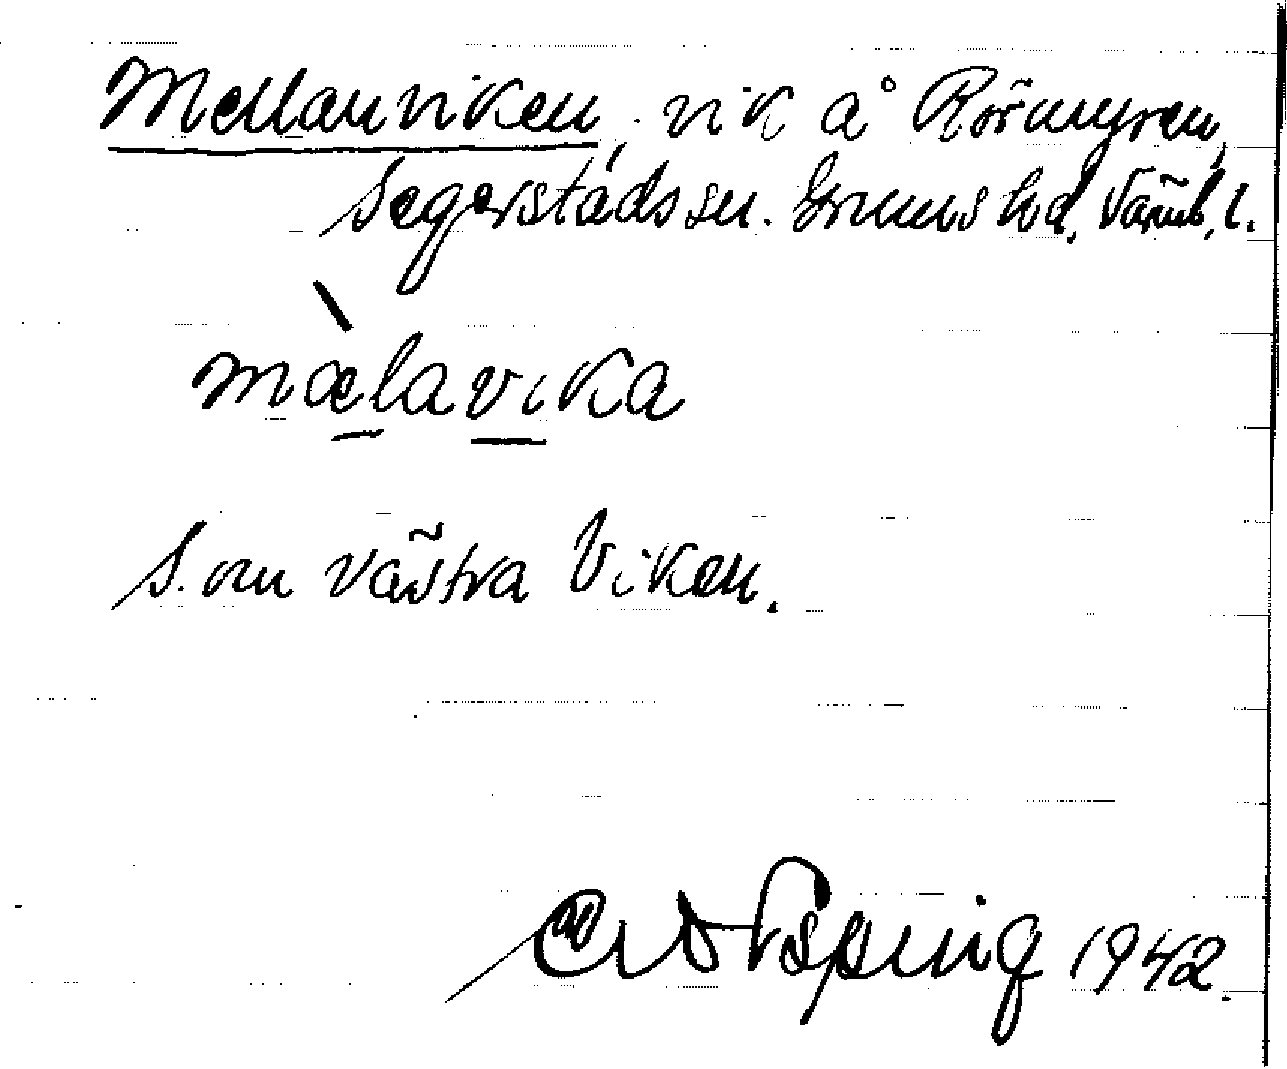 Mellanviken, vik å Rörmyren,
Segerstads sn. Grums hd, Värml. l.
mælavika
S. om västra Viken.
1942.